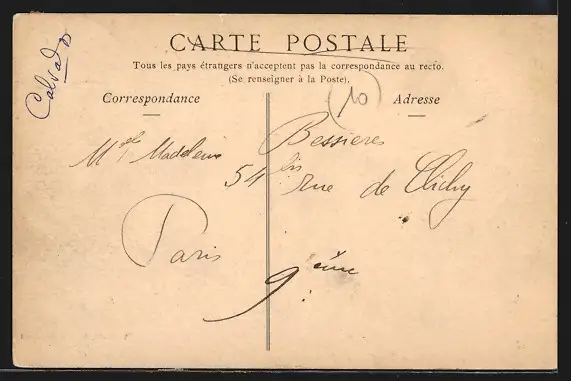 Calvados
CARTE POSTALE
Tous les pays étrangers n'acceptent pas la correspondance au recto.
(Se renseigner à la Poste).
Correspondance
10
Adresse
Melle Madeleine Bessieres
54 bis rue de Clichy
Paris
9ème